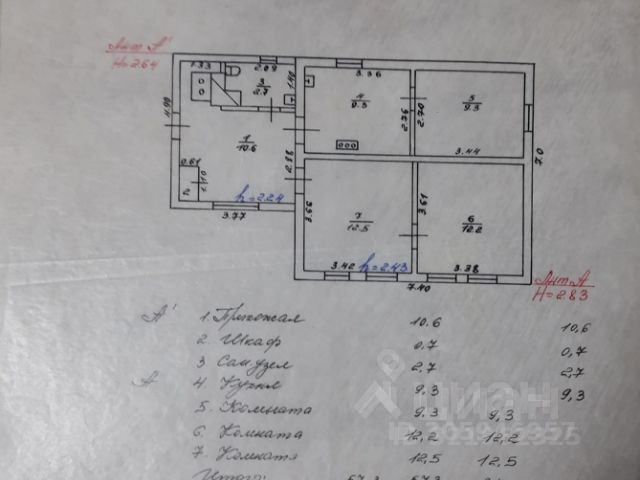 Лит А'
H=2.64
1.33
2.09
1.40
3
2.7
3.36
4
9.3
2.76
2.70
5
9.3
3.44
4.90
1
10.6
2.98
0.61
1.10
2
h=2.24
3.77
3.63
7
12.5
3.61
6
12.2
7.0
3.42
h=2.43
3.38
7.40
Лит А
H=2.83
А' 1. Прихожая 10.6 10,6
2 Шкаф 0.7 0,7
3 Сан узел 2.7 2,7
А 4. Кухня 9.3 9,3
5. Комната 9.3 9,3
6. Комната 12,2 12,2
7. Комната 12,5 12,5
Итого: 57.3 57.3
ЦИАН